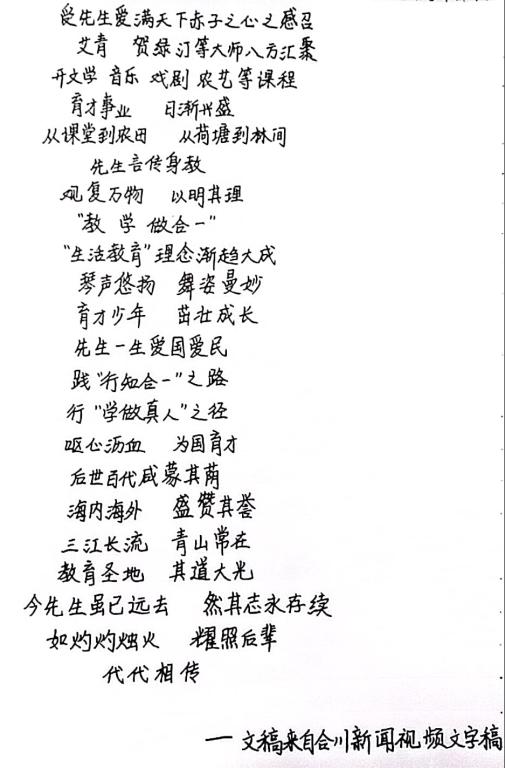 受先生爱满天下赤子之心之感召
艾青 贺绿汀等大师八方汇聚
开文学 音乐 戏剧 农艺等课程
育才事业 日渐兴盛
从课堂到农田 从荷塘到林间
先生言传身教
观复万物 以明其理
“教 学 做合一”
“生活教育”理念渐趋大成
琴声悠扬 舞姿曼妙
育才少年 茁壮成长
先生一生爱国爱民
践“行知合一”之路
行“学做真人”之径
呕心沥血 为国育才
后世百代咸蒙其荫
海内海外 盛赞其誉
三江长流 青山常在
教育圣地 其道大光
今先生虽已远去 然其志永存续
如灼灼烛火 耀照后辈
代代相传
— 文稿来自合川新闻视频文字稿